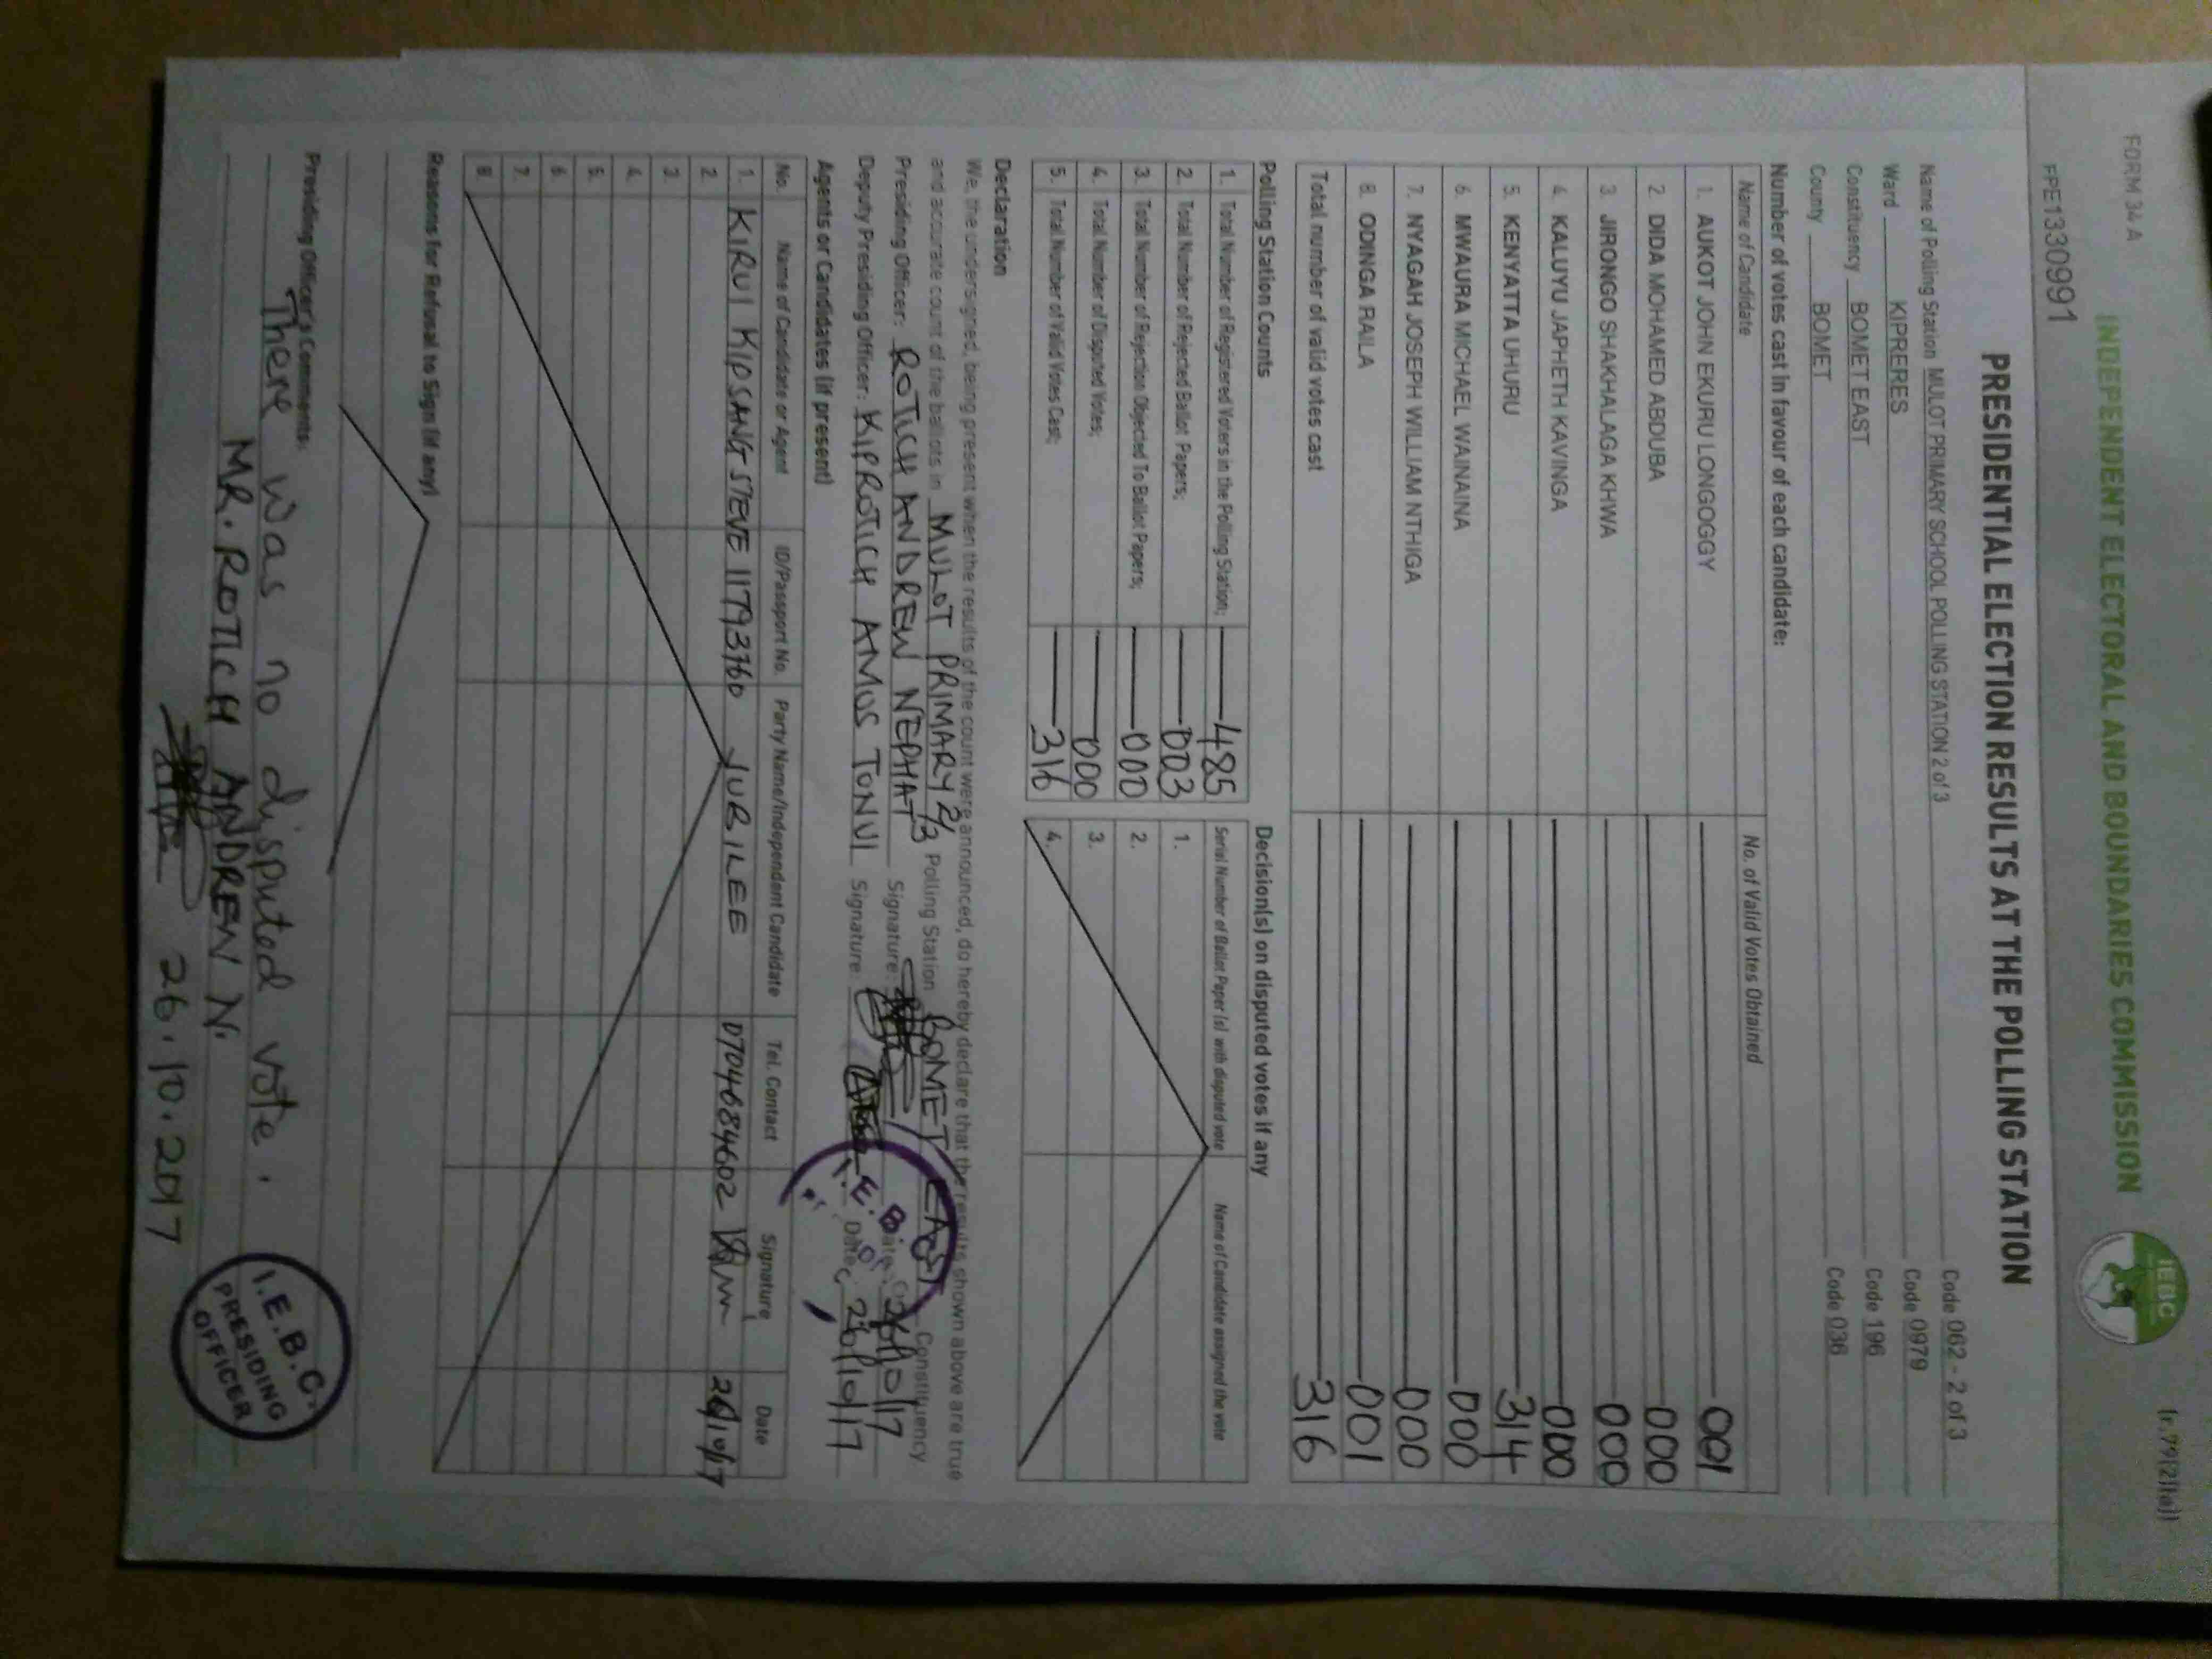 FORM 34 A
(r.79(2)(a))
INDEPENDENT ELECTORAL AND BOUNDARIES COMMISSION
IEBC
FPE1330991
PRESIDENTIAL ELECTION RESULTS AT THE POLLING STATION
Name of Polling Station MULOT PRIMARY SCHOOL POLLING STATION 2 of 3 Code 062 - 2 of 3
Ward KIPRERES Code 0979
Constituency BOMET EAST Code 196
County BOMET Code 036
Number of votes cast in favour of each candidate:
Name of Candidate No. of Valid Votes Obtained
1. AUKOT JOHN EKURU LONGOGGY 001
2. DIDA MOHAMED ABDUBA 000
3. JIRONGO SHAKHALAGA KHWA 000
4. KALUYU JAPHETH KAVINGA 000
5. KENYATTA UHURU 314
6. MWAURA MICHAEL WAINAINA 000
7. NYAGAH JOSEPH WILLIAM NTHIGA 000
8. ODINGA RAILA 001
Total number of valid votes cast 316
Polling Station Counts Decision(s) on disputed votes if any
Serial Number of Ballot Paper (s) with disputed vote Name of Candidate assigned the vote
1. Total Number of Registered Voters in the Polling Station; 485
2. Total Number of Rejected Ballot Papers; 003 1.
3. Total Number of Rejection Objected To Ballot Papers; 000 2.
4. Total Number of Disputed Votes; 000 3.
5. Total Number of Valid Votes Cast; 316 4.
Declaration
We, the undersigned, being present when the results of the count were announced, do hereby declare that the results shown above are true
and accurate count of the ballots in MULOT PRIMARY 2/3 Polling Station BOMET EAST Constituency
Presiding Officer: ROTICH ANDREW NEPHAT Signature: Date: 26/10/17
Deputy Presiding Officer: KIPROTICH AMOS TONUI Signature: Date: 26/10/17
I.E.B.C
Agents or Candidates (if present)
No. Name of Candidate or Agent ID/Passport No. Party Name/Independent Candidate Tel. Contact Signature Date
1. KIRUI KIPSANG STEVE 11793760 JUBILEE 0704684602 26/10/17
2.
3.
4.
5.
6.
7.
8.
Reasons for Refusal to Sign (if any)
Presiding Officer's Comments:
There was no disputed vote.
MR. ROTICH ANDREW N.
26.10.2017
I.E.B.C.
PRESIDING
OFFICER